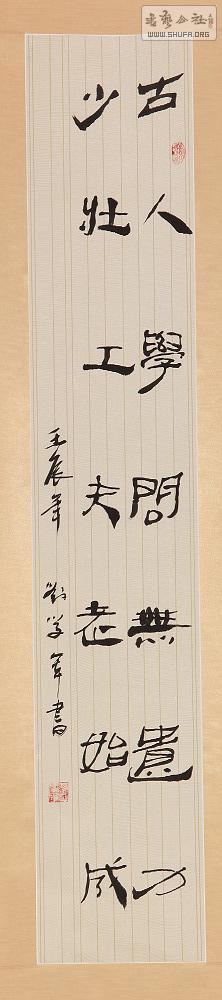 書藝公社
WWW.SHUFA.ORG
古人學問無遺力
少壯工夫老始成
壬辰年 劉学軍書